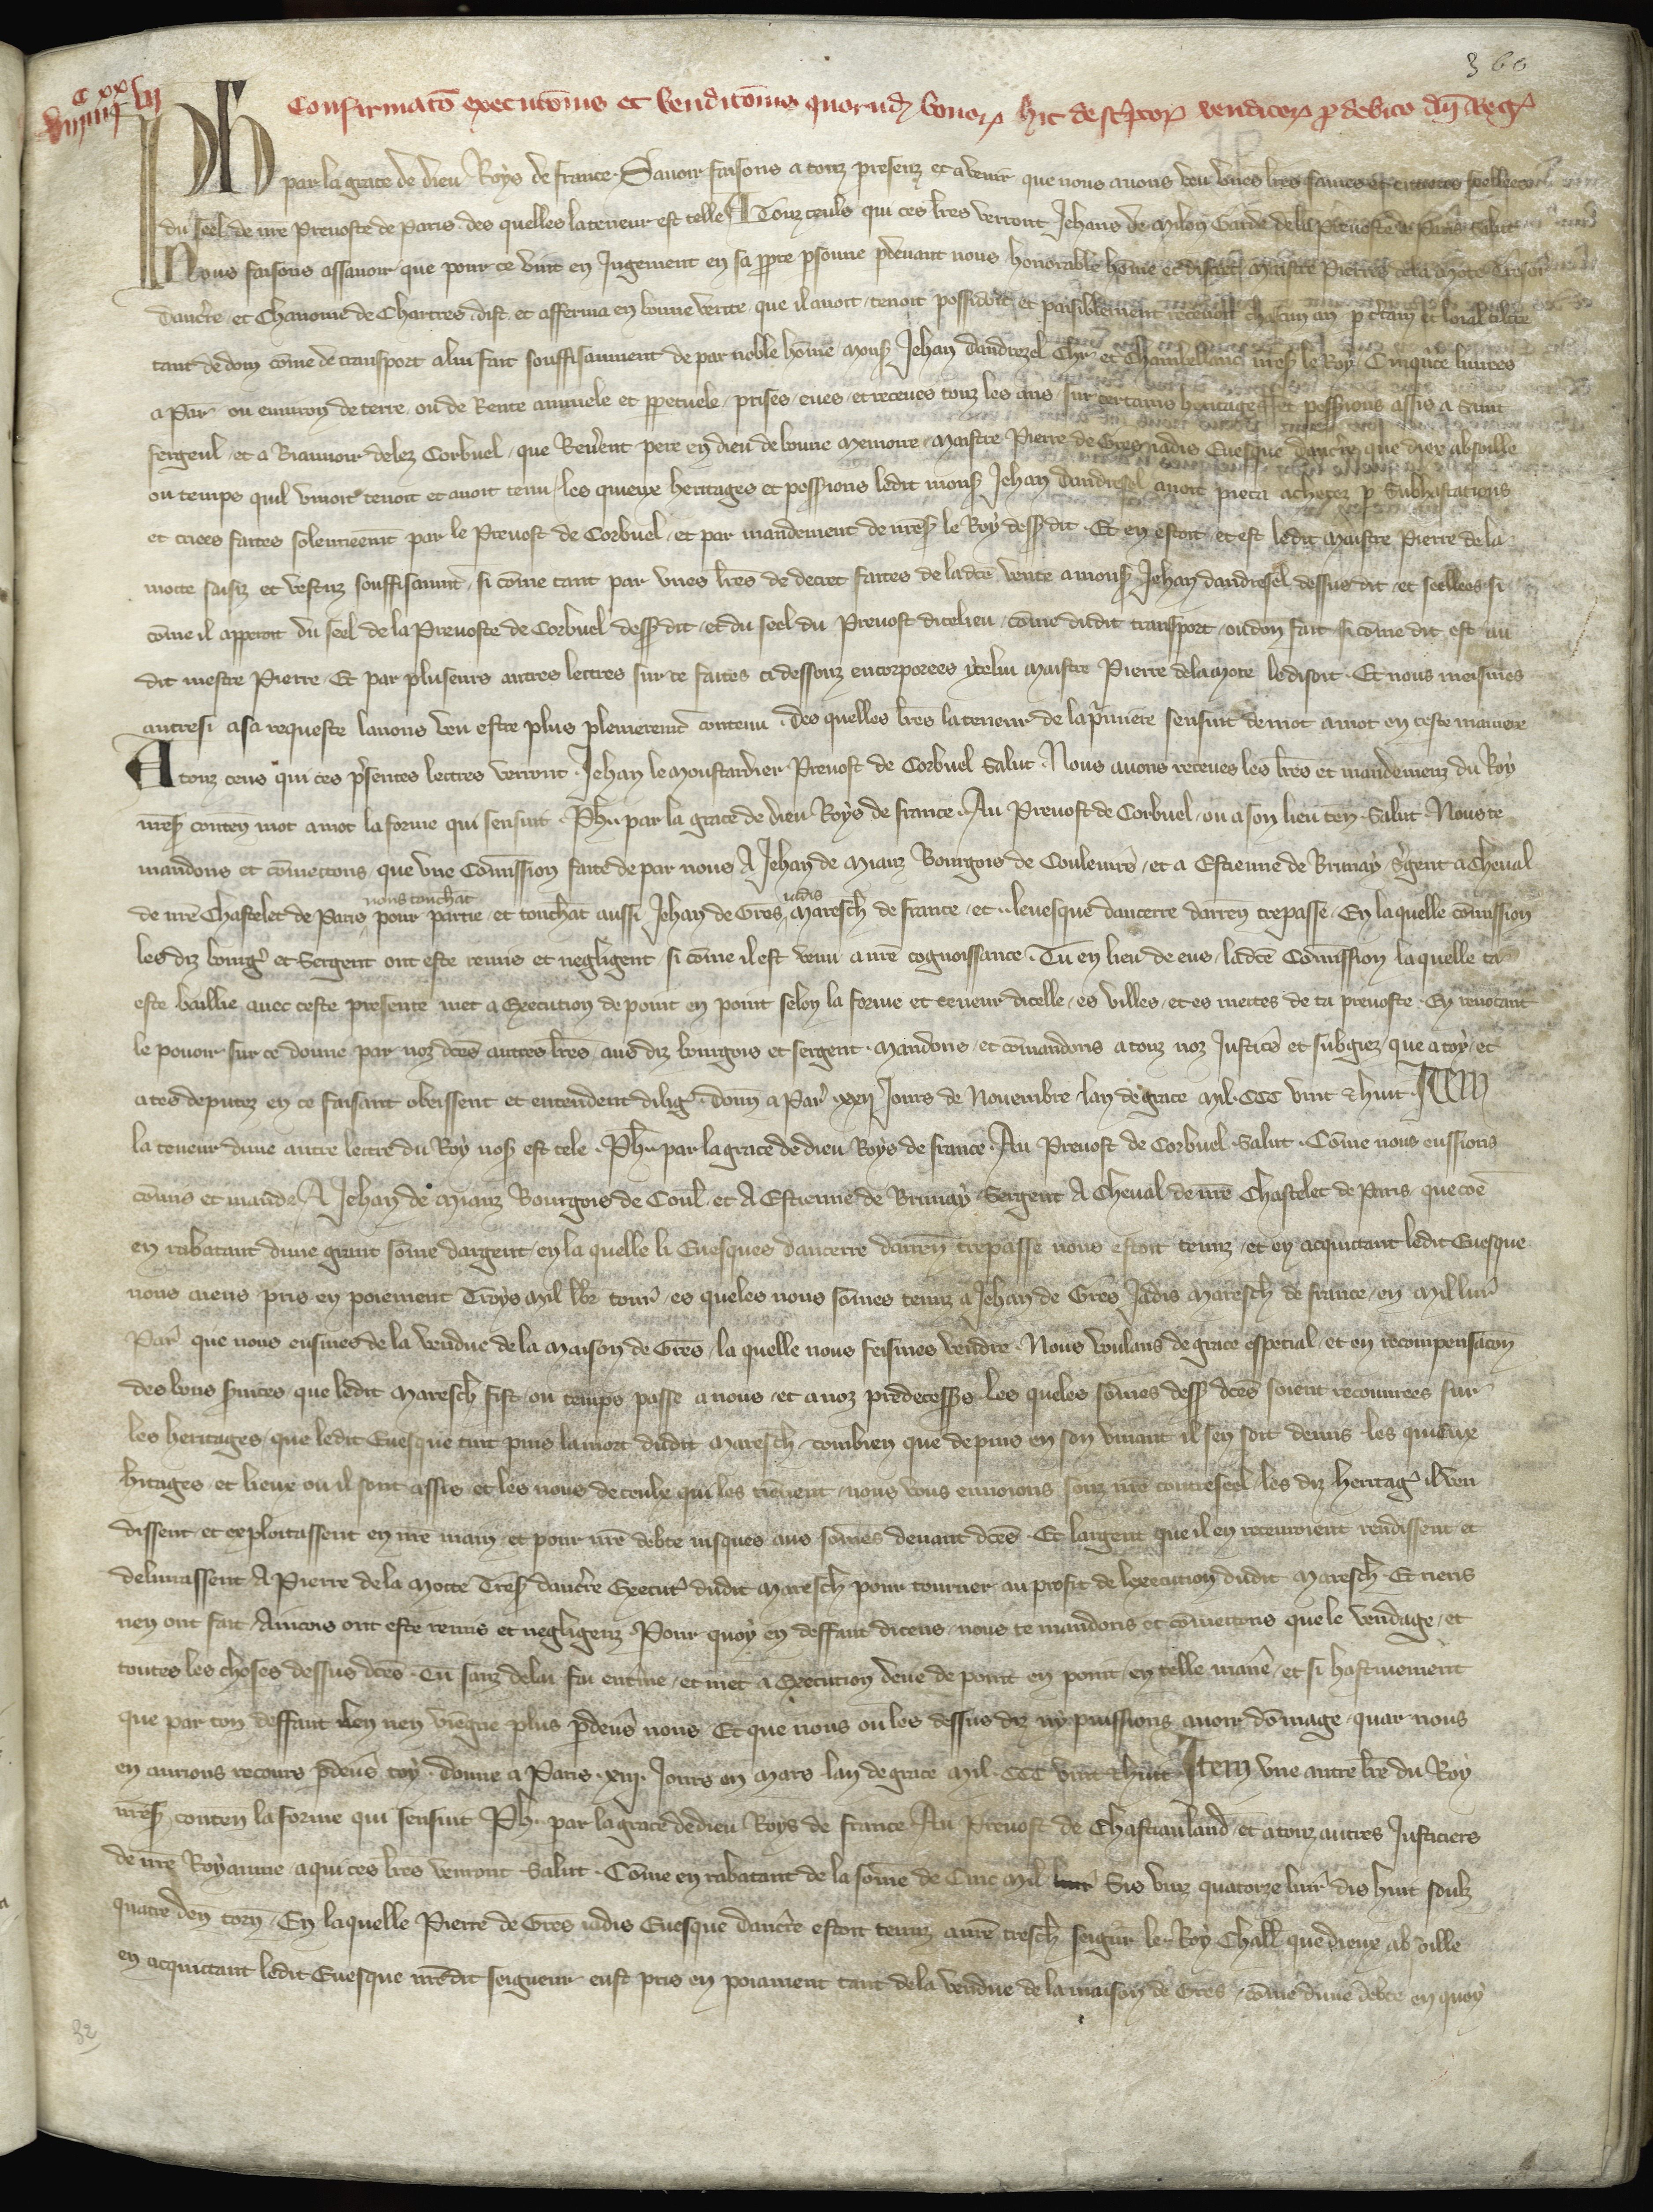 360
C XX VII
VIII IIII
Confirmatō execucōnis et vendicōnis quorūdꝫ bonoꝝ hic descptoꝝ venditoꝝ ꝓ debito dn̄i Regꝭ
Ph par la grace de dieu Roys de france. Sauoir faisons a touz presenz et auenir que nous auons veu vnes lr̄es saines et entieres seellees
du seel de nr̄e Preuoste de Paris des quelles la teneur est telle A Touz ceuls qui ces lr̄es verront Jehans de Milon Garde de la Preuoste de Paris Salut
Nous faisons assauoir que pour ce vint en Jugement en sa ꝓpre ꝑsonne ꝑdeuant nous honorable hōme et discret Maistre Pierre de la Mote Tresor
daucr̄re et Chanoine de Chartres dist et afferma en bonne verite que il auoit tenoit possidoit et paisiblement receuoit chascun an ꝑ c̄tain et loial tiltre
tant de don cōme de transport a lui fait souffisanment de par noble hōme Monsꝭ Jehan dandrezel Chr̄ et Chambellanc nr̄esꝭ le Roy Cinqn̄te liures
a Par ou enuiron de terre ou de Rente annuele et ꝑpetuele prises eues et receues touz les ans sur certains heritages et possessions assis a Saint
fergeul et a Biauuoir delez Corbuel que Reuerent pere en dieu de bonne memoire Maistre Pierre de Gres iadis Euesque daucr̄re que diex absoille
ou temps quil viuoit tenoit et auoit tenu les quieux heritages et possessions ledit monsꝭ Jehan dandresel auoit pieca achetez ꝑ Subhastacions
et criees faites solennement par le Preuost de Corbuel et par mandement de nr̄esꝭ le Roy dessꝰ dit Et en estoit et est ledit Maistre Pierre de la
motte saisiz et vestuz souffisanmt si cōme tant par vnes lr̄es de decret faites de ladce vente a monsꝭ Jehan dandresel dessus dit et seellees si
cōme il apparoit du seel de la Preuoste de Corbuel dessꝰ dit et du seel du Preuost dicelieu cōme dudit transport ou don fait si cōme dit est au
dit mestre Pierre Et par pluseurs autres lettres sur ce faites ci dessouz encorporees ycelui Maistre Pierre de la Mote le disoit Et nous meismes
autresi a sa requeste lauons veu estre plus plenierement contenu des quelles lr̄es la teneur de la pmiere sensuit de mot a mot en ceste maniere
A touz ceus qui ces psentes lettres verront Jehan le Moustardier Preuost de Corbuel Salut Nous auons receues les lr̄es et mandemenz du Roy
nr̄esꝭ conten̄ mot a mot la forme qui sensuit Ph par la grace de dieu Roys de france Au Preuost de Corbuel ou a son lieu ten̄ Salut Nous te
mandons et cōmettons que vne Cōmission faite de par nous A Jehan de Miauz Bourgois de Couleurs et a Estienne de Brunay Sgent a Cheval
nous touchāt iadis
de nr̄e Chastelet de Paris pour partie et touchāt aussi Jehan de Gres Maresch de france et leuesque daucerre darren̄ trepasse En laquelle cōmission
les diz bourgꝭ et Sergent ont este remis et negligent si cōme il est venu a nr̄e cognoissance Tu en lieu de eus ladce Cōmission la quelle ta
este baillie auec ceste presente met a Execution de point en point selon la forme et teneur dicelle es villes et es mettes de ta preuoste En reuocant
le pouoir sur ce donne par noz dces autres lr̄es aus diz bourgois et sergent Mandons et cōmandons a touz noz Justicꝭ et subgiez que a toy et
a tes deputez en ce faisant obeissent et entendent diligꝭ donn̄ a Parꝭ xxij Jours de Nouembre lan de grace Mil CCC vint & huit Item
la teneur dune autre lettre du Roy nosꝭ est tele Ph par la grace de dieu Roys de france Au Preuost de Corbuel Salut Cōme nous eussions
cōmis et mande A Jehan de Miauz Bourgois de Coul et A Estienne de Brunay Sergent A Cheval de nr̄e Chastelet de Paris que cōe
en rabatant dune grant sōme dargent en la quelle li Euesques daucerre darren̄ trepasse nous estoit tenuz et en acquittant ledit Euesque
nous aiens pris en poiement Troys Mil lb̄r tourꝭ es queles nous sōmes tenuz a Jehan de Gres Jadis Maresch de france en Mil liurꝭ
Parꝭ que nous eusmes de la vendue de la Maison de Gres la quelle nous feismes vendre Nous voulans de grace especial et en recompensacōn
des bons Suices que ledit Maresch fist ou temps passe a nous et a noz predecessꝭs les queles sōmes dessꝰ dces soient recouurees sur
les heritages que ledit Euesque tint puis la mort dudit Maresch combien que depuis en son viuant il sen soit demis les quieux
hitages et lieux ou il sont assis et les nons de ceulx qui les tienent nous vous enuoions souz nr̄e contreseel les diz heritagꝭ il ven
dissent et exploitassent en nr̄e main et pour nr̄e debte iusques aus sōmes deuant dces Et largent que il en receuroient rendissent et
deliurassent A Pierre de la Motte Tresꝭ daucr̄re Executꝭ dudit Maresch pour tourner au profit de lexecution dudit Maresch Et riens
nen ont fait Aincois ont este remis et negligenz Pour quoy en deffaut diceus nous te mandons et cōmettons que le vendage et
toutes les choses dessus dces Tu sanz delai fai entīne et met a Execution deue de point en point en telle maniē et si hastiuement
que par ton deffaut len nen viegne plus ꝑdeuꝰs nous Et que nous ou les dessus diz ny puissions auoir dōmage quar nous
en aurions recours ꝑdeuꝰs toy donne a Paris xiij Jours en Mars lan de grace Mil CCC vint & huit Item vne autre lr̄e du Roy
nr̄esꝭ conten̄ la forme qui sensuit Ph par la grace de dieu Roys de france Au Preuost de Chastiauland et a touz autres Justiciers
de nr̄e Royaume a qui ces lr̄es venront Salut Cōme en rabatant de la sōme de Cinc Mil Sis vinz quatorze liurꝭ dis huit soulz
quatre den̄ torn̄ En la quelle Pierre de Gres iadis Euesque daucr̄re estoit tenuz a nr̄e tresch seignr̄ le Roy Challꝭ que dieux absoille
en acquittant ledit Euesque nr̄e dit seigneur eust pris en poiament tant de la vendue de la maison de Gres cōme dune debte en quoy
32